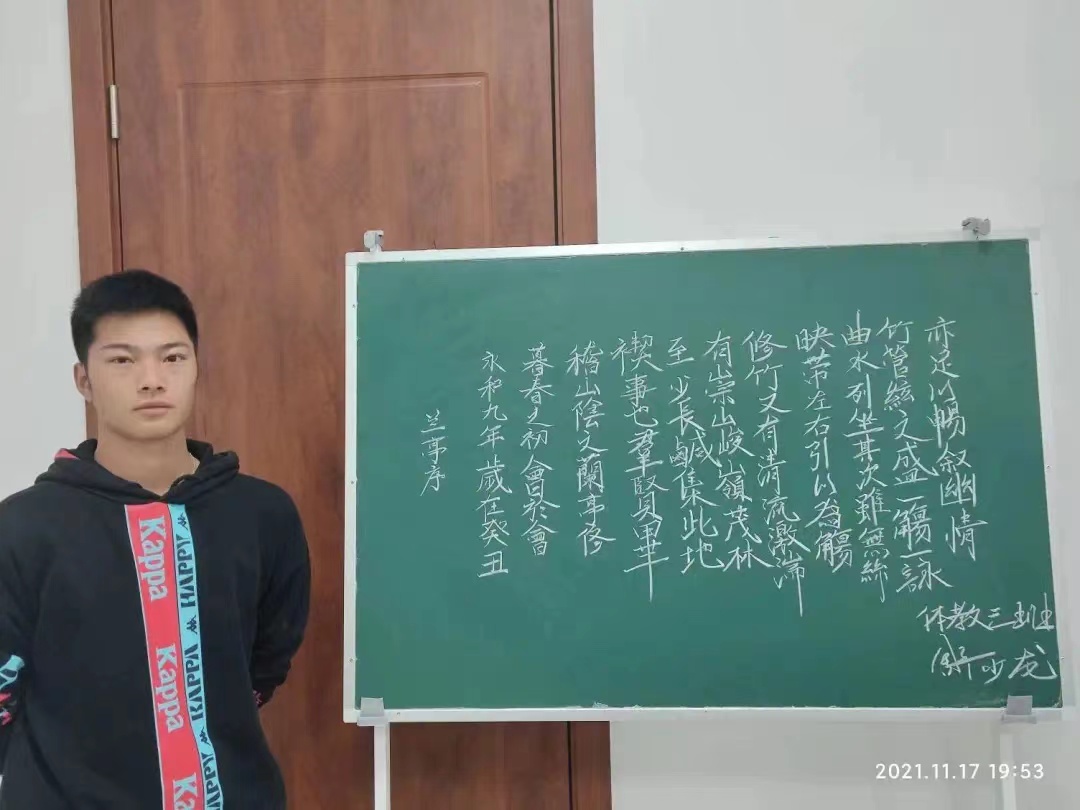 兰亭序
永和九年歲在癸丑
暮春之初會於會
稽山陰之蘭亭修
禊事也羣賢畢
至少長鹹集此地
有崇山峻嶺茂林
修竹又有清流激湍
映带左右引以為觴
曲水列坐其次雖無絲
竹管絃之盛一觴一詠
亦足以暢叙幽情
体教三班
舒少龙
Kappa
KAPPA
Kappa
KAPPA
Kappa
KAPPA
2021.11.17 19:53